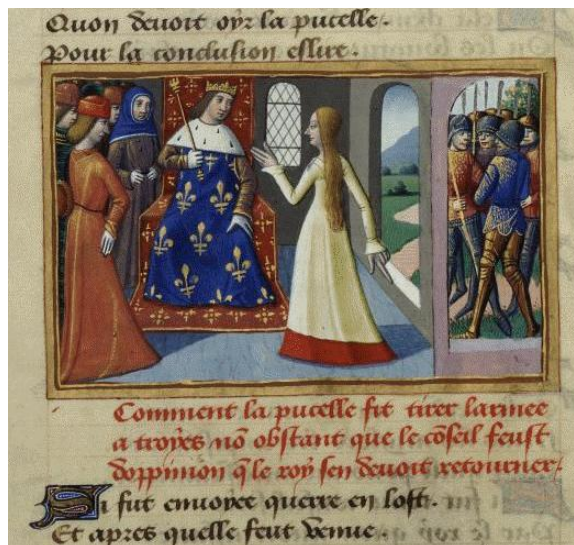 Quon devoit oyr la pucelle.
Pour la conclusion eslire.
Comment la pucelle fit tirer larmee
a troyes nõ obstant que le cõseil feust
doppinion q̃ le roy sen devoit retourner
Si fut envoyee querre en lost.
Et apres quelle feut venue.